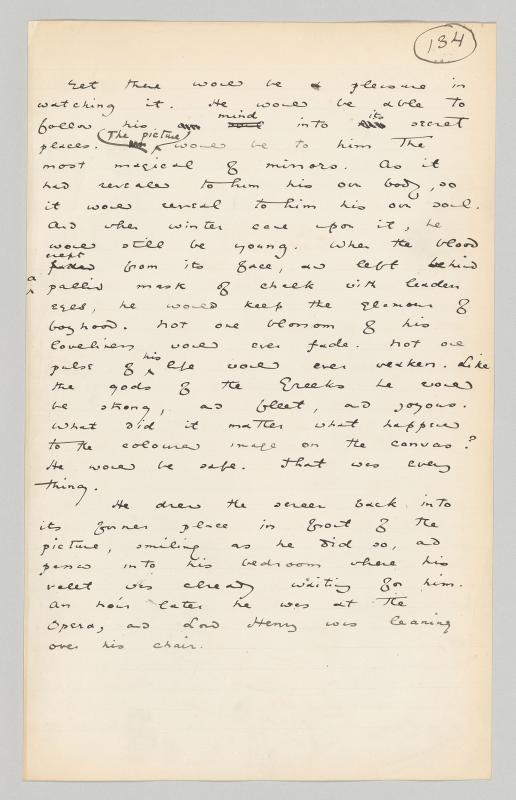 134
Yet there would be a pleasure in
watching it. He would be able to
follow his mind into its secret
places. The picture would be to him the
most magical of mirrors. As it
had revealed to him his own body, so
it would reveal to him his own soul.
And when winter came upon it, he
would still be young. When the blood
crept from its face, and left behind
a pallid mask of chalk with leaden
eyes, he would keep the glamour of
boyhood. Not one blossom of his
loveliness would ever fade. Not one
pulse of his life would ever weaken. Like
the gods of the Greeks he would
be strong, and fleet, and joyous.
What did it matter what happened
to the coloured image on the canvas?
He would be safe. That was every
thing.
He drew the screen back into
its former place in front of the
picture, smiling as he did so, and
passed into his bedroom where his
valet was already waiting for him.
An hour later he was at the
Opera, and Lord Henry was leaning
over his chair.